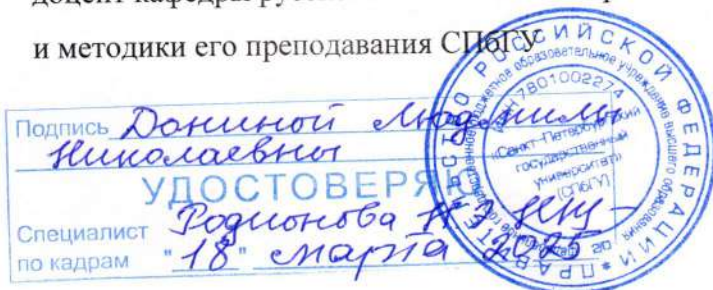 доцент кафедры
и методики его преподавания СПбГУ
Подпись Дониной Людмилы
Николаевны
УДОСТОВЕРЯЮ
Специалист Родионова Н Э
по кадрам "18" марта 2025
ПРАВИТЕЛЬСТВО РОССИЙСКОЙ ФЕДЕРАЦИИ
ИНН 7801002274
«Санкт-Петербургский
государственный
университет»
(СПбГУ)